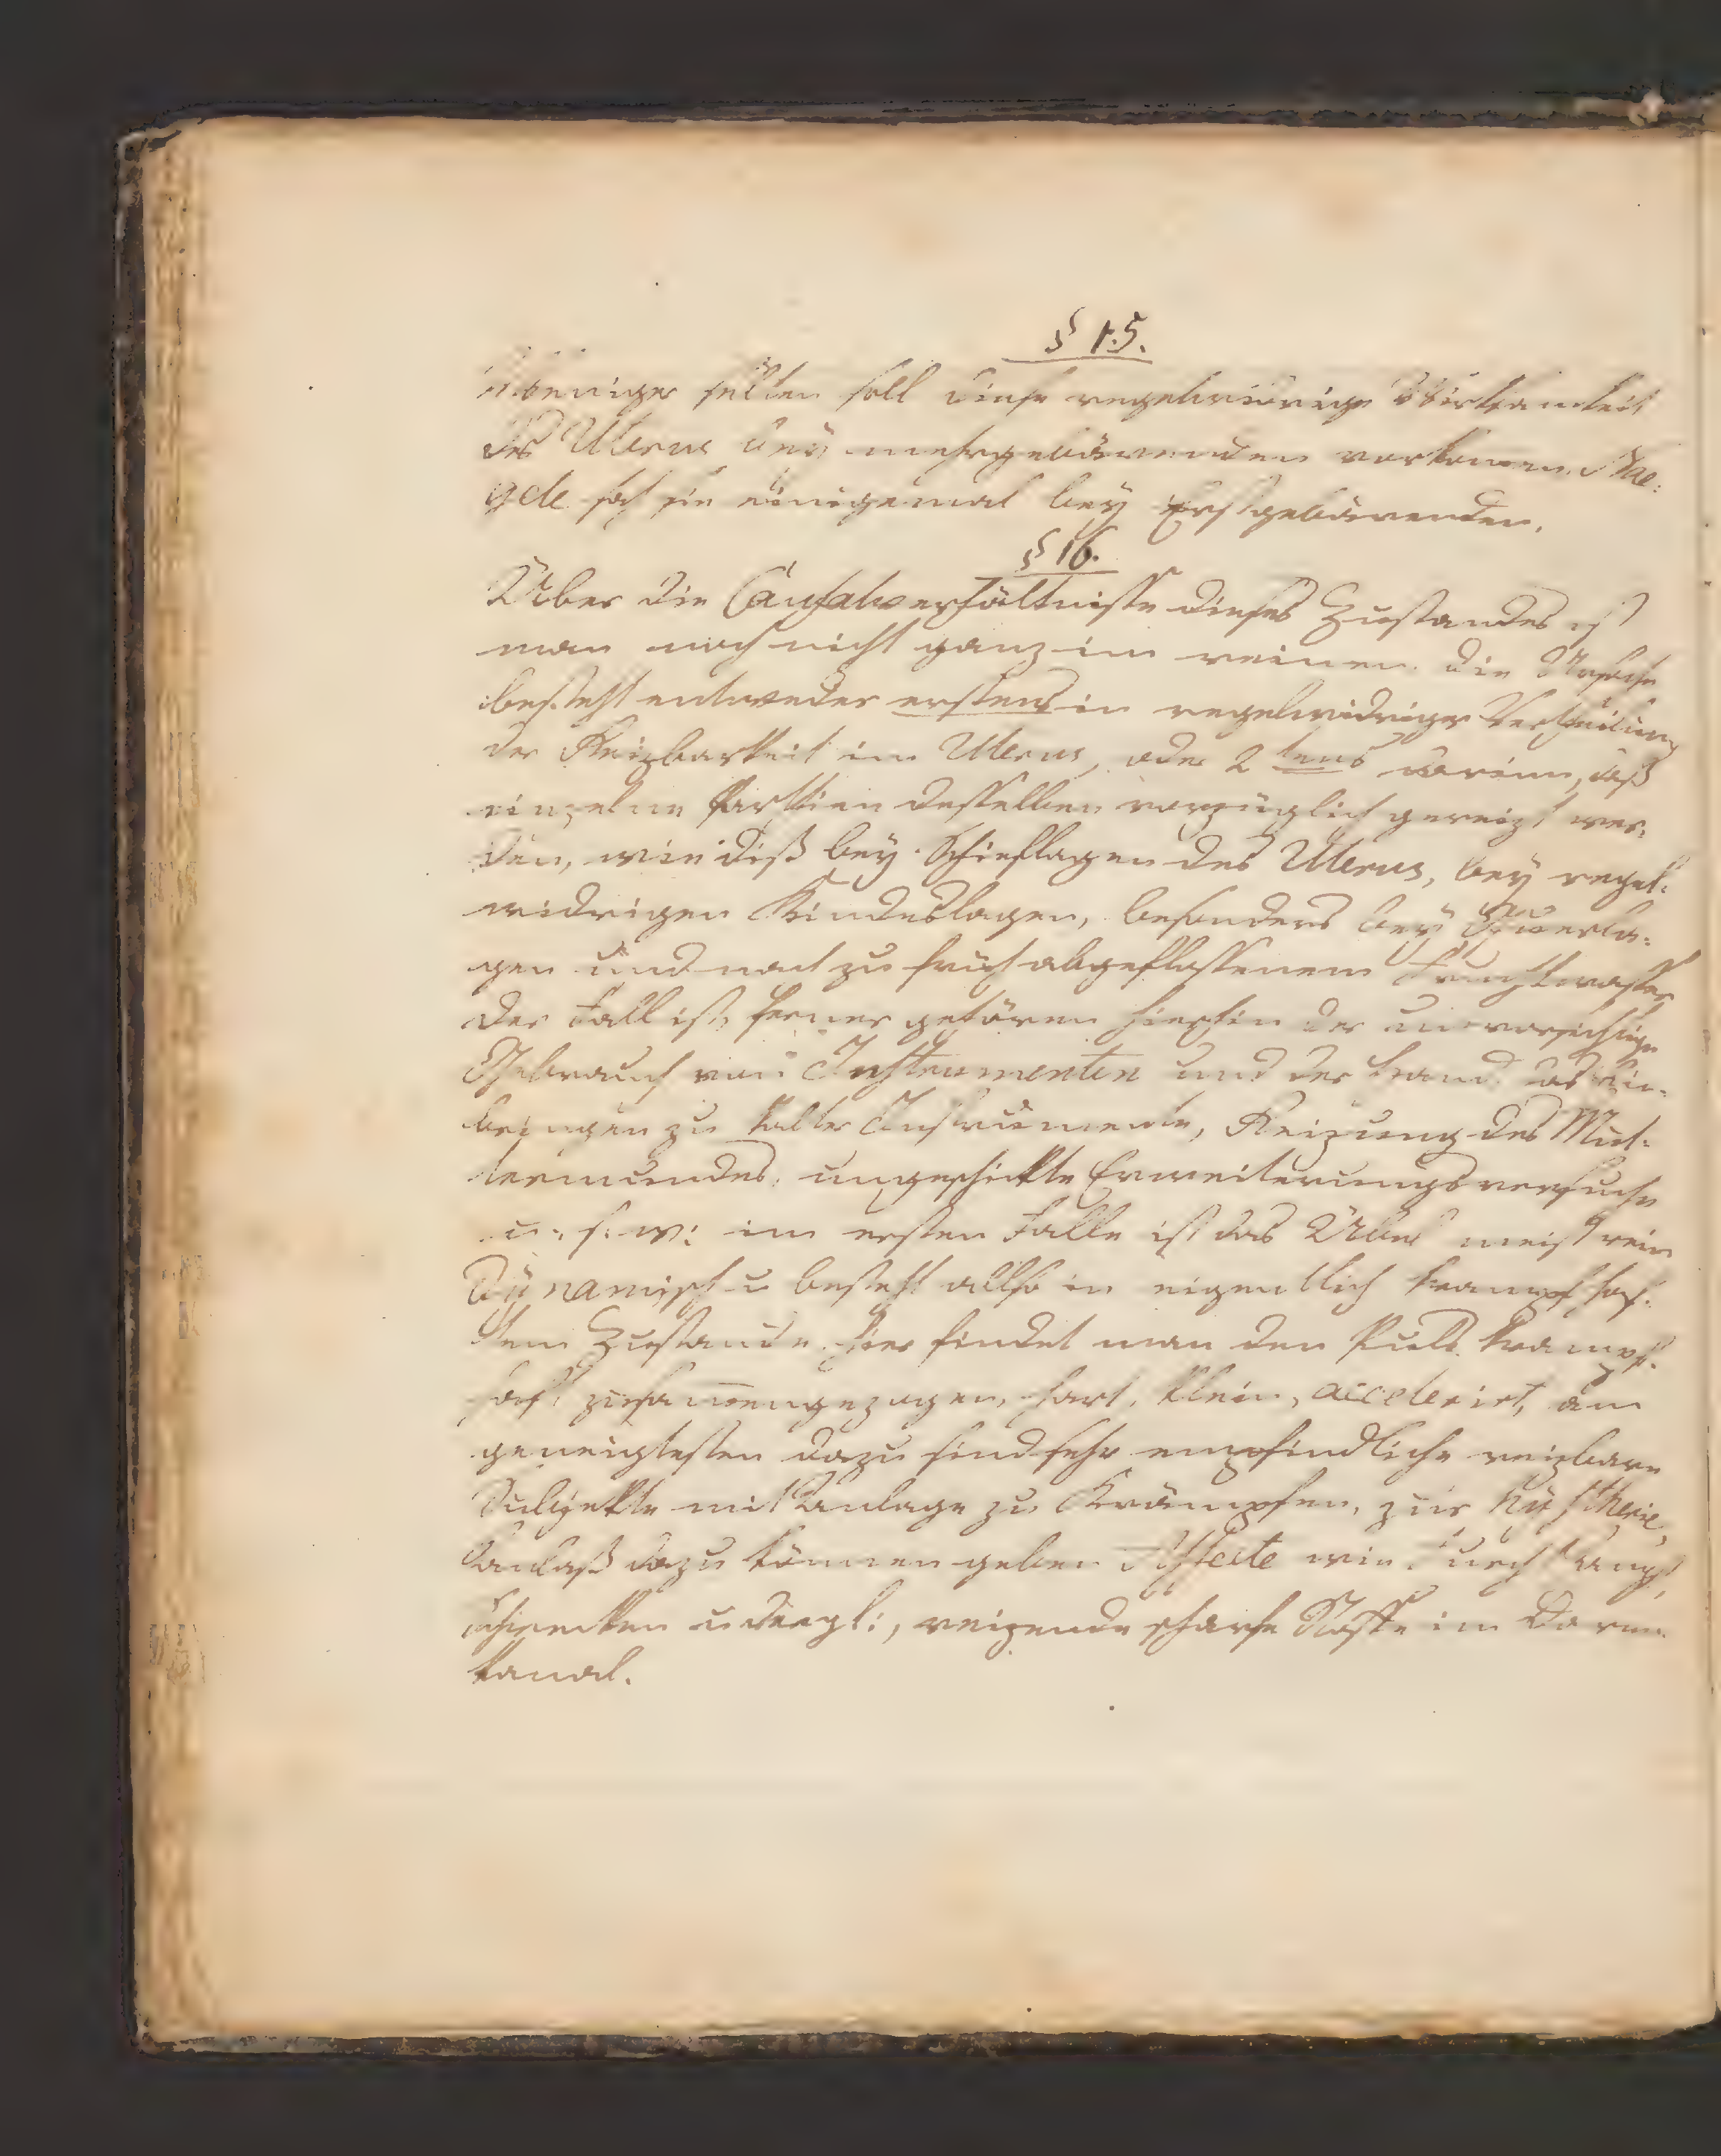 § 15.
Weniger selten soll diese regelwidrige Wirksamkeit
des Uterus bey mehrgebärenden vorkommen. Nae:
gele sah sie einigemal bey Erstgebärenden.
§ 16.
Über die Causalverhältnisse dieses Zustandes ist
man noch nicht ganz im reinen. Die Ursache
besteht entweder erstens in regelwidriger Vertheilung
der Reizbarkeit im Uterus, oder 2tens darinn, daß
einzelne Parthien desselben vorzüglich gereizt wer:
den, wie diß bey Schieflagen des Uterus, bey regel:
widrigen Kindeslagen, besonders bey Querla:
gen und nach zu früh abgeflossenem Fruchtwasser
der Fall ist, ferner gehören hierhin der unvorsichtige
Gebrauch von Instrumenten und der Hand das Ein:
bringen zu kalter Instrumente, Reizung des Mut:
termundes, ungeschickte Erweiterungsversuche
u. s. w: im ersten Falle ist das Übel meist rein
dynamisch u besteht allso in eigentlich krampfhaf:
tem Zustande. Hier findet man den Puls krampf:
haft zusam̄engezogen, hart, klein, accelerirt, am
geneigtesten dazu sind sehr empfindliche reizbare
Subjekte mit Anlage zu Krämpfen, zur Hysterie,
Anlaß dazu können geben Affecte wie Furcht Angst,
Schrecken u dergl:, reizende scharfe Stoffe im Darm:
kanal.